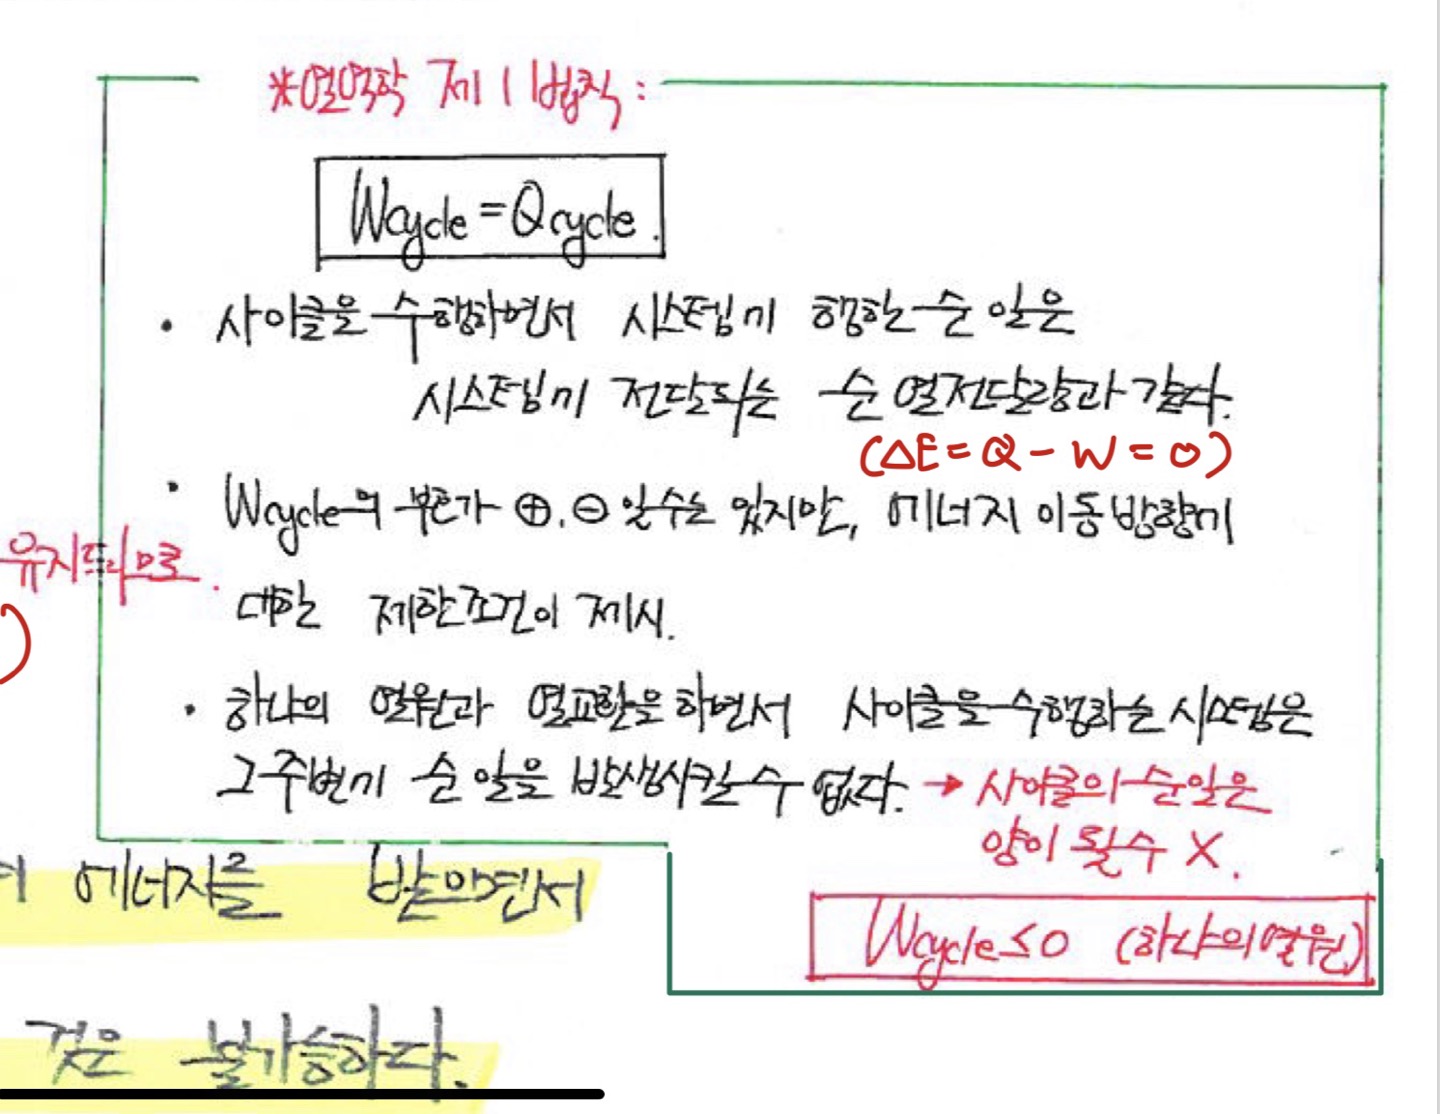 *열역학 제1법칙:
Wcycle = Qcycle.
• 사이클을 수행하면서 시스템이 행한 순 일은
시스템에 전달되는 순 열전달량과 같다.
(△E = Q - W = 0)
• Wcycle의 부호가 ⊕, ⊖ 일수는 있지만, 에너지 이동방향에
유지되므로.
대한 제한조건이 제시.
)
• 하나의 열원과 열교환을 하면서 사이클을 수행하는 시스템은
그 주변에 순 일을 발생시킬 수 없다. → 사이클의 순일은
양이 될 수 X.
에너지를 받으면서
Wcycle ≤ 0 (하나의 열원)
것은 불가능하다.